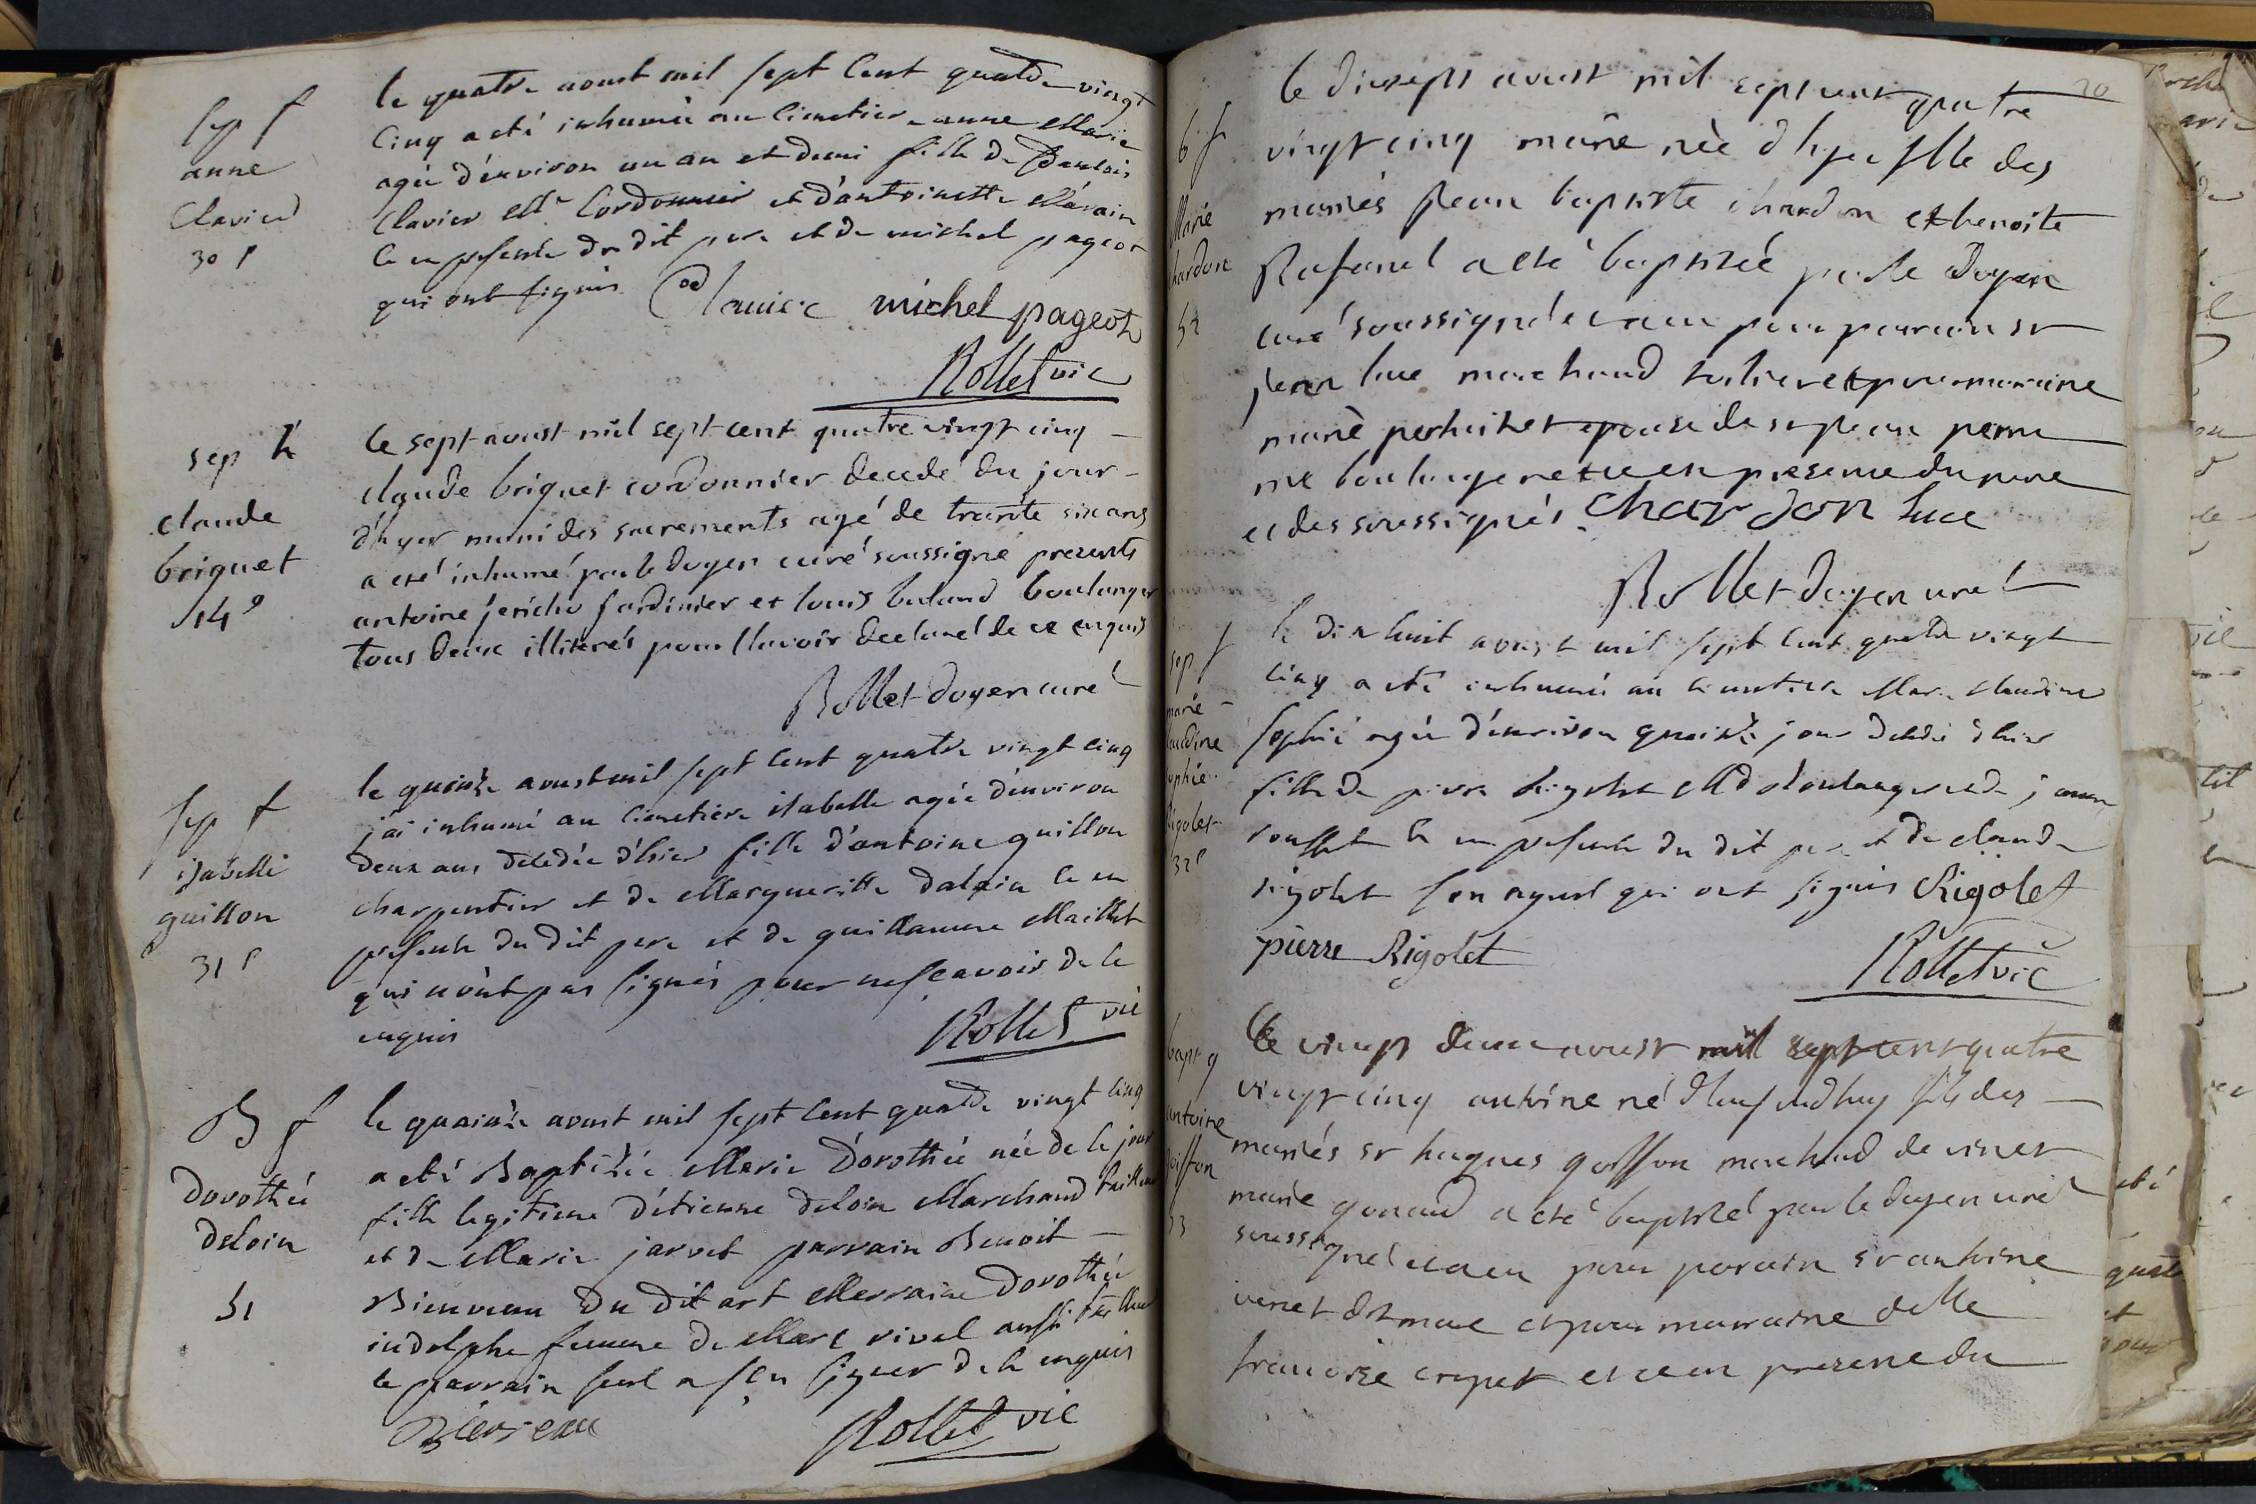 sep f
anne
Clavier
30 f
le quatre aoust mil sept Cent quatre vingt
Cinq a eté inhumée au Cimetiere anne Marie
agée d'environ un an et demi fille de
Clavier Mtre Cordonnier et d'antoinette
Ce en presence du dit pere et de michel pageot
qui ont signés Clavier michel pageot
Rollet vic
sep h
claude
briquet
14e
le sept aoust mil sept cent quatre vingt cinq
claude briquet cordonnier decedé du jour
d'hyer muni des sacrements agé de trante six ans
a eté inhumé par le doyen curé soussigné presents
antoine jericho jardinier et louis buland boulanger
tous deux illiterés pour l'avoir declaré de ce enquis
Rollet doyen curé
sep f
isabelle
guillon
31 f
le quinze aoust mil sept Cent quatre vingt cinq
j'ai inhumé au Cimetiere isabelle agée d'environ
deux ans decedée d'hier fille d'antoine guillon
charpentier et de Margueritte dalpin Ce en
presence du dit pere et de guillaume Maillet
qui n'ont pas signés pour ne scavoir de ce
enquis
Rollet vic
B f
dorothée
deloin
51
le quainze aoust mil sept Cent quatre vingt cinq
a eté Baptisée Marie Dorothée née de ce jour
fille legitime d'étienne deloin Marchand tailleur
et de Marie jarvet parrain Benoit
Bienvenu du dit art Merraine Dorothée
indolphe femme de Marc rival aussi tailleur
le parrain seul a scu signer de ce enquis
Rollet vic
b f
Marie
chardon
52
le dixsept aoust mil sept cent quatre
vingt cinq marie née d'hyer fille des
mariés jean baptiste chardon et benoite
Rafanel a eté baptisée par le doyen
curé soussigné et a eu pour parrain sr
jean luc marchand et pour marraine
marie epouse de sr jean
boulanger et ce en presence du pere
et des soussignés chardon luce
Rollet doyen curé
sep f
marie
claudine
sophie
Rigolet
32 f
le dix huit aoust mil sept Cent quatre vingt
cinq a eté inhumée au Cimetiere Marie Claudine
sophie agée d'environ quainze jour decedée d'hier
fille de pierre Rigolet Md boulanger et de jeanne
rousset Ce en presence du dit pere et de claude
rigolet son ayeul qui ont signés Rigolet
pierre Rigolet
Rollet vic
bapt g
antoine
53
le vingt deux aoust mil sept cent quatre
vingt cinq antoine né d'aujourdhuy fils des
mariés sr hugues marchand de vin et
marie gonaud a eté baptisé par le doyen curé
soussigné et a eu pour parain sr antoine
venet et pour marraine delle
francoise et ce en presence du